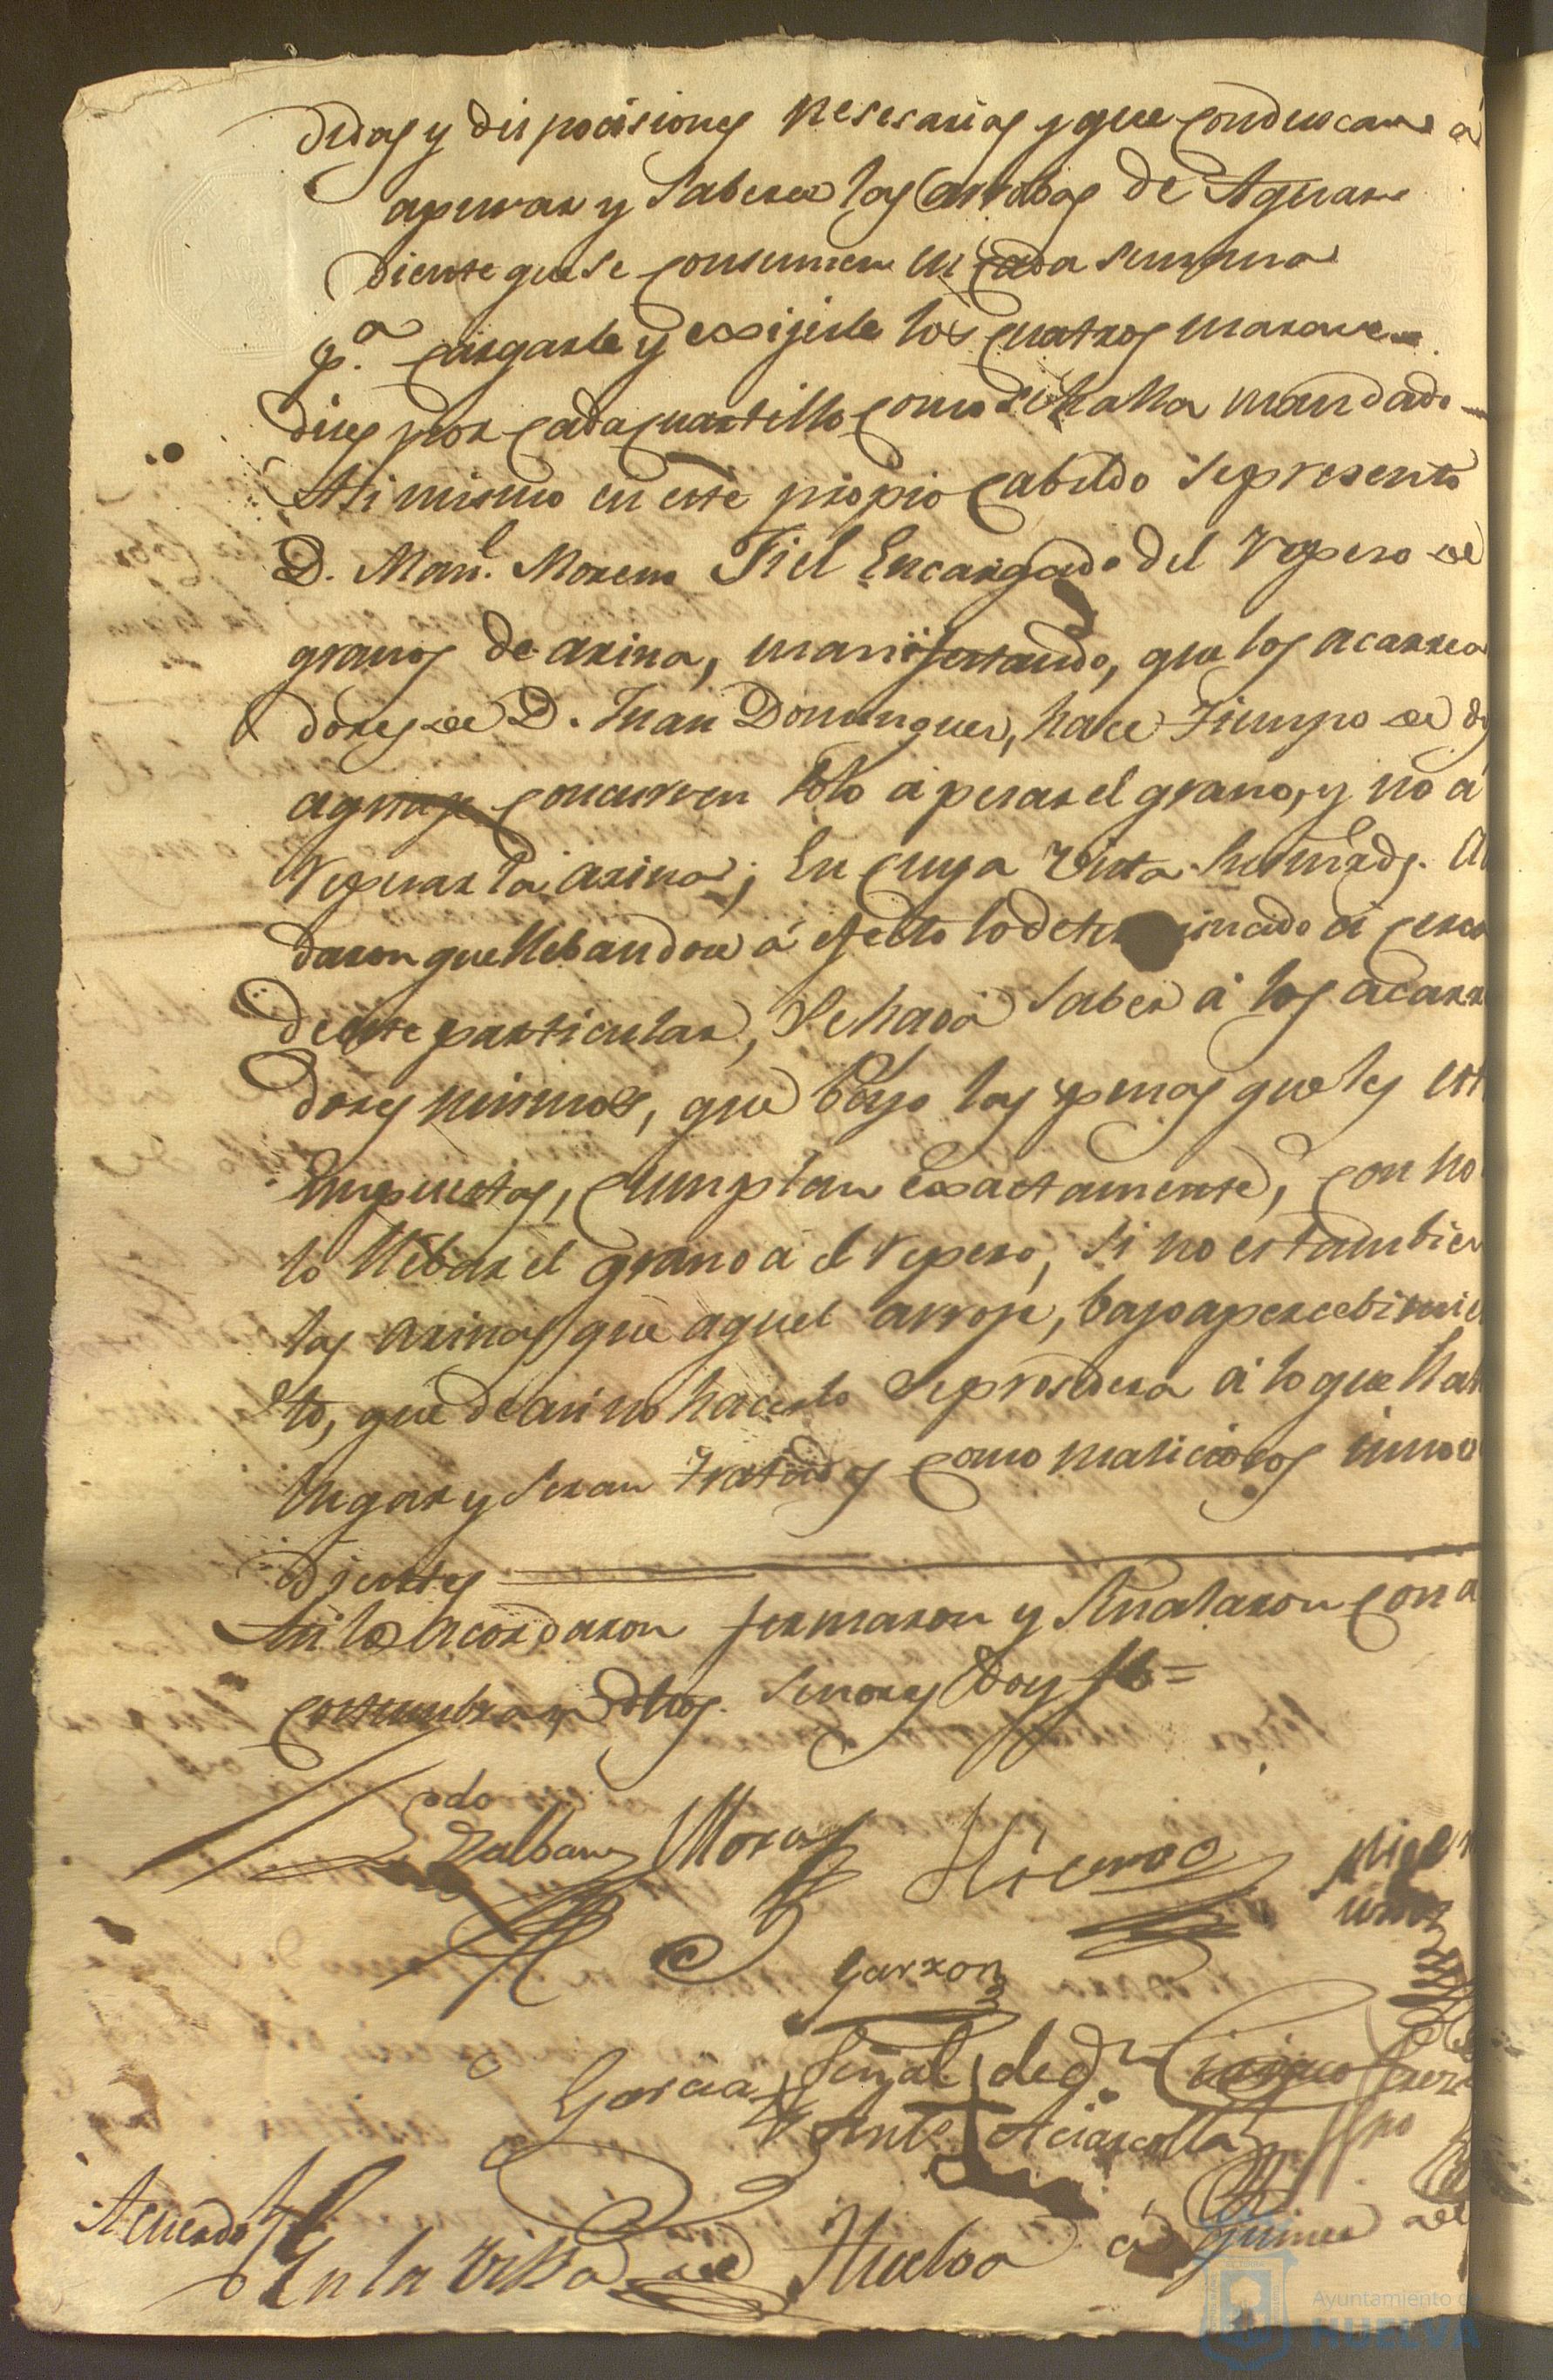 didas y disposisiones nesesarias y que conduscan a
apurar y saberse las arrobas de Aguar
diente que se consumen en cada semana
p.ª cargarle y exijirle los quatros marave
dises por cada quartillo como se halla mandado
Asi mismo en este propio Cabildo se presento
D. Man.l Moreno Fiel Encargado del Repeso de
granos de arina, manifestando, que los acarrea
dores de D. Juan Domingues, hace tiempo de
concurren solo á pesar el grano, y no á
Repesar la arina; En cuya Vista sus mrds. A
daron que llebandose á efecto lo determinado á cerca
de este particular, se haga saber á los acarr
dores mismos, que bajo las penas que les est
Impuestas, cumplan exactamente, con no
lo llebar el grano á el Repeso, si no es tambien
las arinas que aquel arroje, bajo apercebimie
to, que de asi no hacerlo se prosedera á lo que hal
lugar y seran tratados como maliciosos inno
dientes
Asi lo acordaron firmaron y señalaron con a
costumbran dhos. Señores Doy fé =
Galban Moras Hierro
Garzon
Garcia Señal de D.n Ciriaco
Ante
Acuerdo En la Villa de Huelva á quince de
Ayuntamiento de
HUELVA